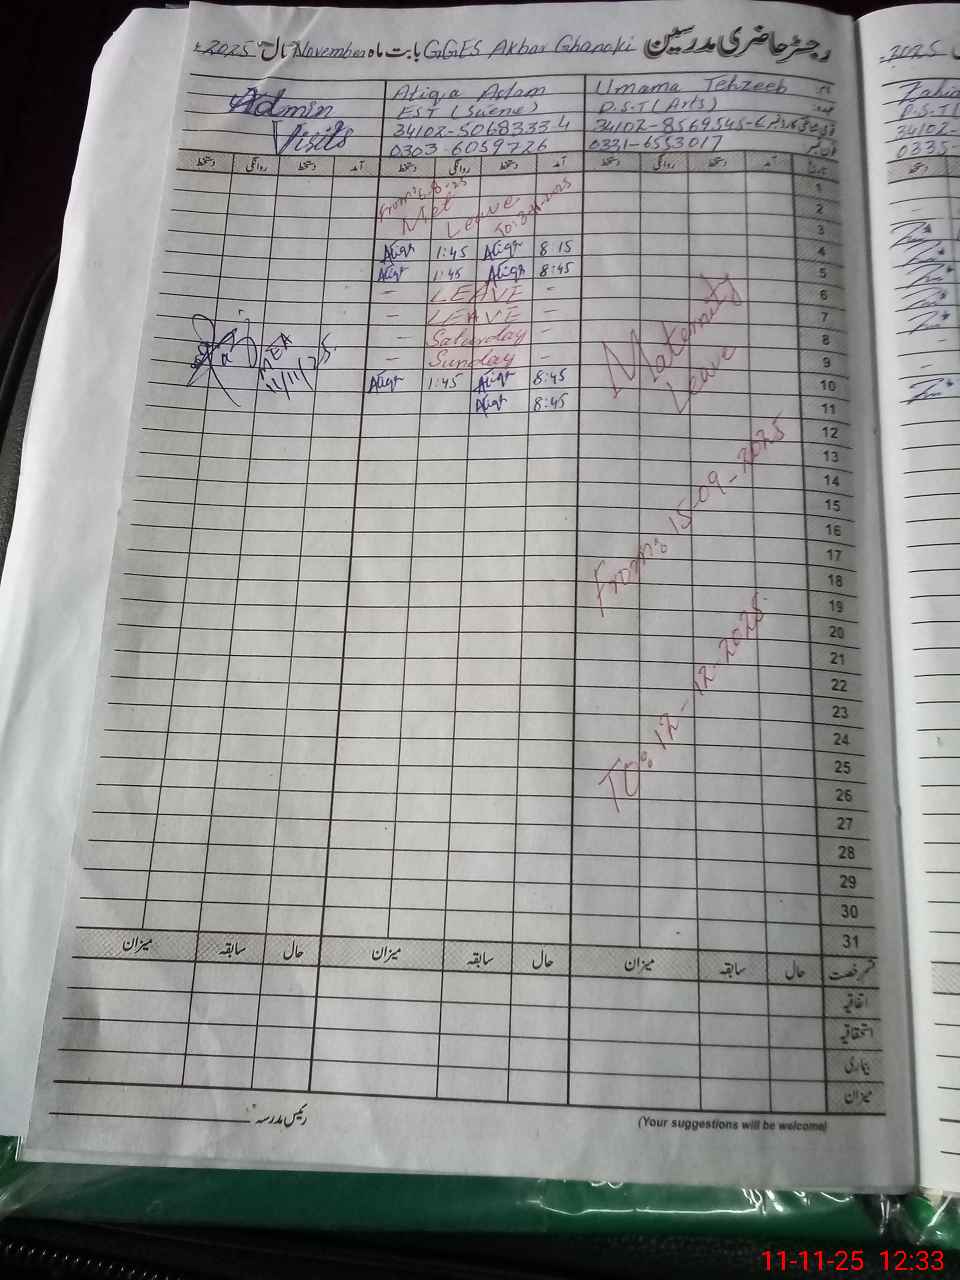 رجسٹر حاضری مدرسین GGES Akbar Ghanoki بابت ماہ November سال 2025ء
Umama Tehzeeb
D.S.T (Arts)
34102-8569545-6
0331-6553017
Atiqa Aslam
EST (Science)
34102-5068333-4
0303-6059726
Admin
Visits
آمد دستخط روانگی دستخط آمد دستخط روانگی دستخط آمد دستخط روانگی دستخط
1
2
3
4
5
6
7
8
9
10
11
12
13
14
15
16
17
18
19
20
21
22
23
24
25
26
27
28
29
30
31
Leave
Atiqa 1:45 Atiqa 8:15
Atiqa 1:45 Atiqa 8:45
- LEAVE -
- LEAVE -
- Saturday -
- Sunday -
Atiqa 1:45 Atiqa 8:45
Atiqa 8:45
MEA
11/11/25.
Maternity
Leave
From: 15-09-2025
To: 12-12-2025
قسم رخصت حال سابقہ میزان حال سابقہ میزان حال سابقہ میزان
اتفاقیہ
استحقاقیہ
بیماری
میزان
رئیس مدرسہ
(Your suggestions will be welcome)
2025
D.S.T
34102-
0335-
11-11-25 12:33